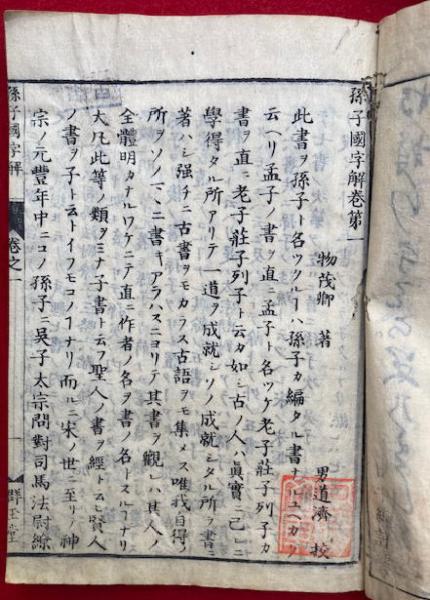 孫子國字解卷第一
物茂卿 著
男道濟 校
此書ヲ孫子ト名ツクルヿハ孫子カ編タル書ナルユヘカク
云ヘリ孟子ノ書ヲ直ニ孟子ト名ツケ老子莊子列子カ
書ヲ直ニ老子莊子列子ト云カ如シ古ノ人ハ眞實ニ己ニ
學得タル所アリテ一道ヲ成就シソノ成就シタル所ヲ書ニ
著ハシ强チニ古書ヲモカラス古語ヲモ集メス唯我自得ノ
所ヲソノマヽニ書キアラハスニヨリテ其書ヲ觀レハ其人ノ
全體明カナルワケニテ直ニ作者ノ名ヲ書ノ名トスルヿナリ
大凡此等ノ類ヲミナ子書ト云フ聖人ノ書ヲ經ト云ヒ賢人
ノ書ヲ子ト云トイフモコノヿナリ而ルニ宋ノ世ニ至リ神
宗ノ元豐年中ニコノ孫子ニ吳子太宗問對司馬法尉繚
孫子國字解
卷之一